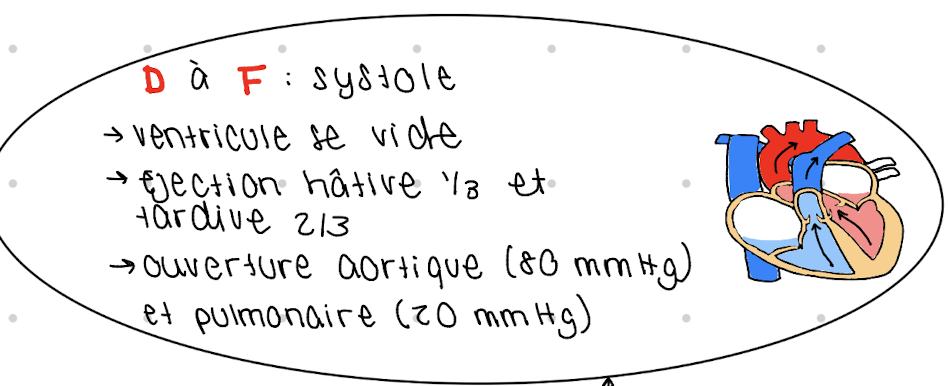 D à F : systole
→ ventricule se vide
→ éjection hâtive 1/3 et
tardive 2/3
→ ouverture aortique (80 mmHg)
et pulmonaire (20 mmHg)